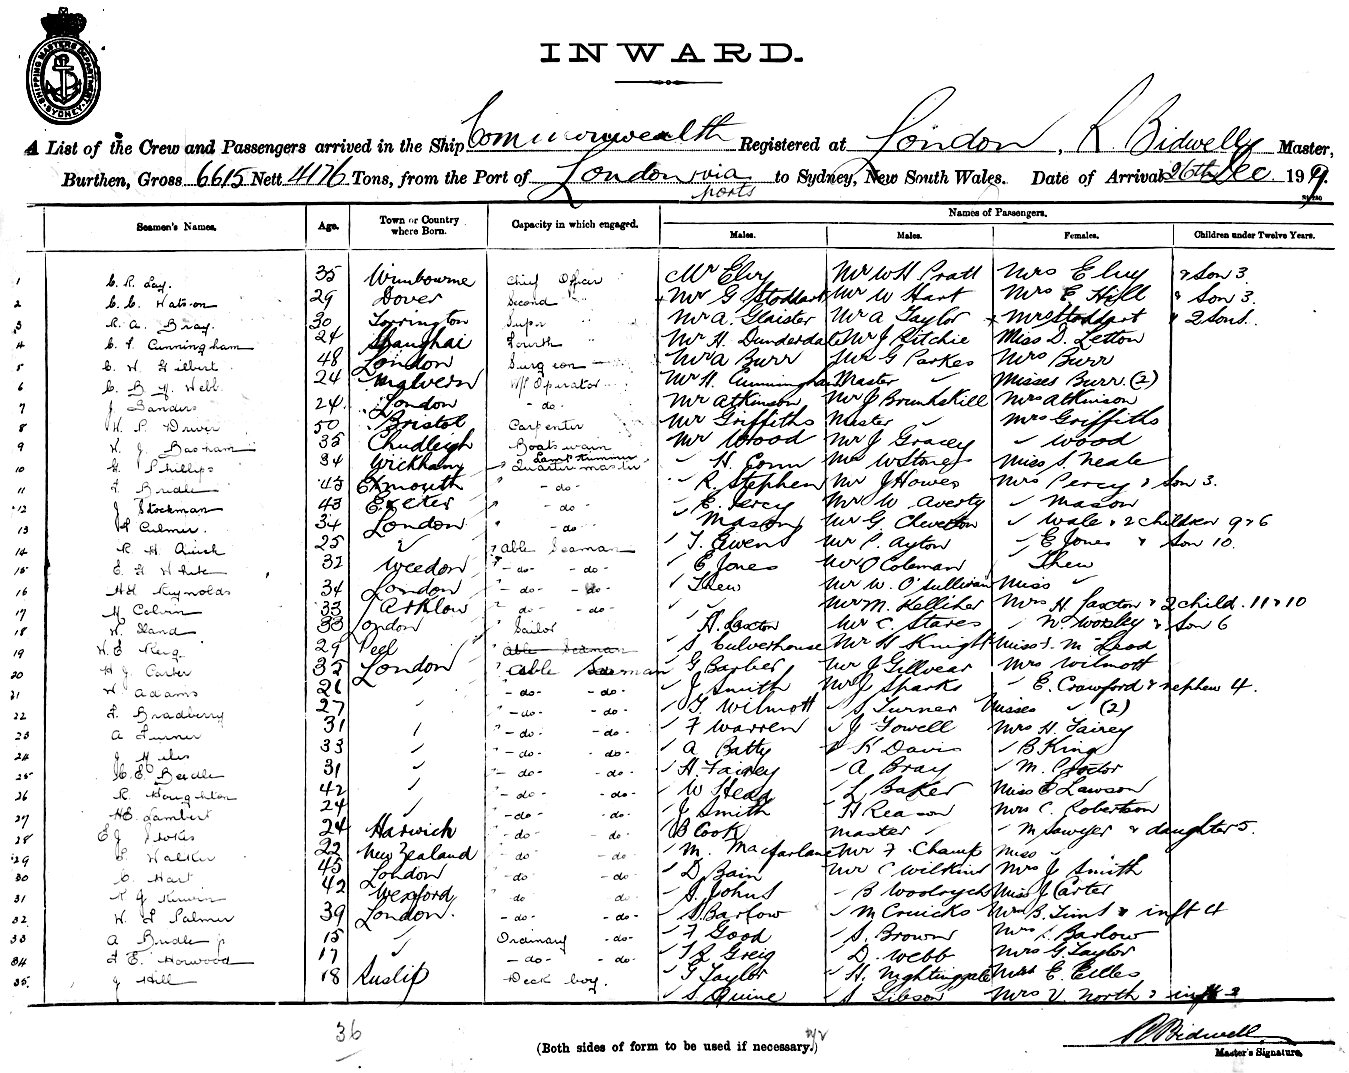 INWARD.
SHIPPING MASTERS DEPARTMENT SYDNEY
A List of the Crew and Passengers arrived in the Ship Commonwealth Registered at London, R Bidwell Master,
Burthen, Gross 6615 Nett 4176 Tons, from the Port of London via ports to Sydney, New South Wales. Date of Arrival 26th Dec 191
Names of Passengers.
Seamen's Names. Age. Town or Country where Born. Capacity in which engaged. Males. Males. Females. Children under Twelve Years.
1 35 Wimbourne Chief Officer Mr Elvy Mr W H Pratt Mrs Elvy & Son 3.
2 C. C. Watson 29 Dover Second " Mr G Stoddart Mr W Hart Mrs E Hill & Son 3.
3 R. A. Bray. 30 Torrington Mr A. Glaister Mr A Taylor Mrs Stoddart & 2 Sons.
4 Cunningham 24 Shanghai Fourth " Mr H. Dunderdale Mr J Ritchie Miss D. Letton
5 C. W. Gilbert 48 London Surgeon Mr A Burr Mr G Parkes Mrs Burr
6 Webb 24 Malvern W/T Operator Mr H. Cunningham Master " Misses Burr. (2)
7 J Sanders 24 London - do - Mr Atkinson Mr J Brunskill Mrs Atkinson
8 Driver 50 Bristol Carpenter Mr Griffiths Master " Mrs Griffiths
9 W. J. Basham 35 Chudleigh Boatswain Mr Wood Mr J Gracey " Wood
10 Phillips 34 Wickham Lamp trimmer Quartermaster " H. Conn Mr W Stones Miss S. Neale
11 Bridle 43 Exmouth - do - " R Stephen Mr J Howes Mrs Percy & Son 3.
12 J Stockman 43 Exeter - do - " E. Percy Mr W Averty " Mason
13 Culmer. 34 London - do - " Mason Mr G. " Wale & 2 children 9 & 6
14 R H 25 " able Seaman " T. Ewens Mr P. Ayton " E Jones & Son 10.
15 E. White 32 Weedon - do - - do - " E Jones Mr O Coleman " Thew
16 Reynolds 34 London - do - - do - " Thew Mr W. O'Sullivan Miss "
17 Colvin 33 Arklow - do - - do - " " Mr M. Kelliher Mrs H. Saxton & 2 child. 11 & 10
18 W. Hand 33 London Sailor " H. Saxton Mr C. Stares " W Worsley & Son 6
19 W. E. 29 Peel able Seaman " S Culverhouse Mr H Knight Miss M Leod
20 H J. Carter 35 London able Seaman " G Barber Mr J Gillvear Mrs Wilmott
21 W Adams 21 " - do - - do - " J Smith Mr J Sparks " E. Crawford & nephew 4.
22 Bradberry 27 " - do - - do - " T Wilmott " S Turner Misses " (2)
23 A Turner 31 " - do - - do - " F Warren " J Fowell Mrs H. Fairey
24 J Miles 33 " - do - - do - " A Batty " K Davis " B King
25 Beedle 31 " - do - - do - " H. Fairey " A Bray " M. Proctor
26 R. Houghton 42 " - do - - do - " W Head " L Baker Miss E Lawson
27 Lambert 24 " - do - - do - " J Smith " H Reason Mrs C. Robertson
28 E J Stokes 24 Harwich - do - - do - " B Cook Master " " M Sawyer & daughter 5.
29 Walker 22 New Zealand - do - - do - " M. Macfarlane Mr F. Champ Miss "
30 C. Hart 45 London - do - - do - " D Bain Mr C Wilkins Mrs J Smith
31 42 Wexford - do - - do - " S. Johns " B Woolrych Miss Carter
32 W. Palmer 39 London. - do - - do - " S. Barlow " M Cruicks Mrs B. Tims & inft 4
33 A Bridle 15 " Ordinary - do - " F Good " S. Brown Mrs Barlow
34 E. Norwood 17 " - do - - do - " Greig " D. Webb Mrs G Taylor
35. J Hill 18 Ruslip Deck boy. " G Taylor " H. Nightingale Miss E. Eeles
" S Quine " S Gibson Mrs V. North & inft
36
(Both sides of form to be used if necessary.)
R Bidwell
Master's Signature.